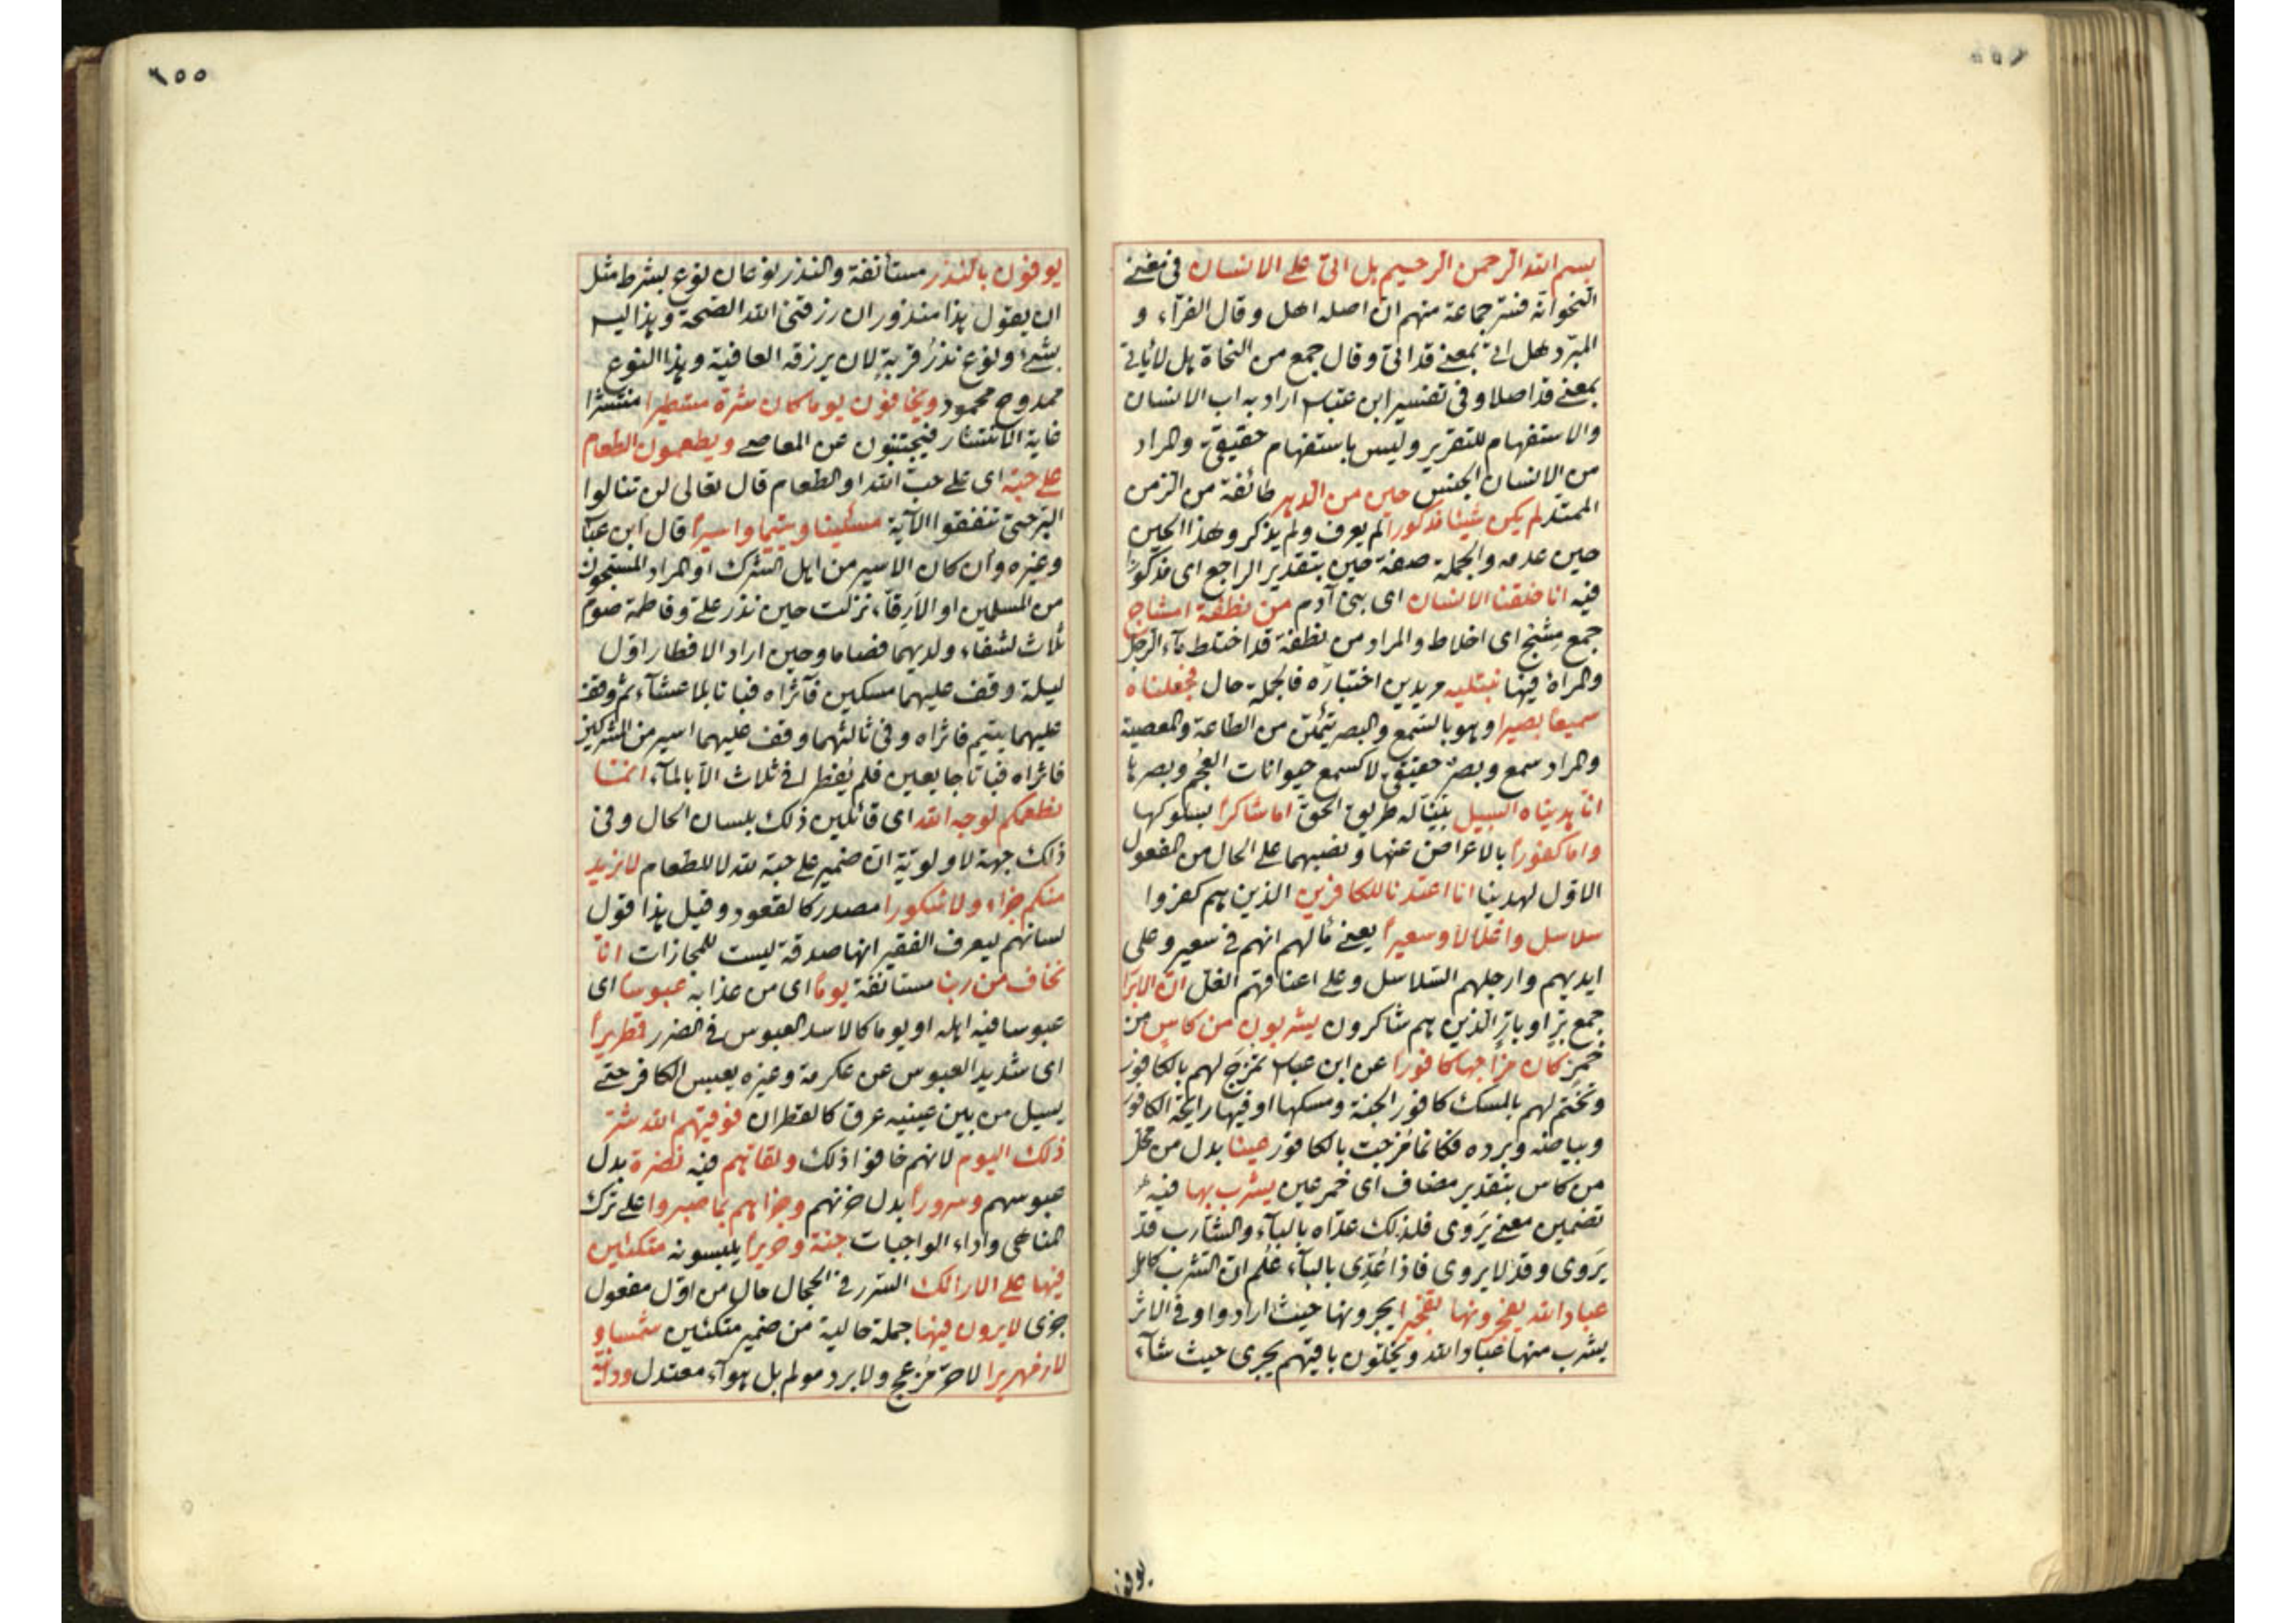 بسم الله الرحمن الرحيم هل اتى على الانسان فى مغنى
النحو انه فسر جماعة منهم ان اصله اهل وقال الفرآء و
المبرد هل اتى بمعنى قد اتى وقال جمع من النحاة هل لا يأتى
بمعنى قد اصلا وفى تفسير ابن عباس اراد به اب الانسان
والاستفهام للتقرير وليس باستفهام حقيقى والمراد
من الانسان الجنس حين من الدهر طائفة من الزمن
الممتد لم يكن شيئا مذكورا لم يعرف ولم يذكر وهذا الحين
حين عدمه والجملة صفة حين بتقدير الراجع اى مذكورا
فيه انا خلقنا الانسان اى بنى آدم من نطفة امشاج
جمع مشج اى اخلاط والمراد من نطفة قد اختلط مآء الرجل
والمرأة فيها نبتليه مريدين اختباره فالجملة حال فجعلناه
سميعا بصيرا وهو بالسمع والبصر يتمكن من الطاعة والمعصية
والمراد سمع وبصر حقيقى لا كسمع حيوانات العجم وبصرها
انا هديناه السبيل بينا له طريق الحق اما شاكرا بسلوكها
واما كفورا بالاعراض عنها ونصبهما على الحال من المفعول
الاول لهدينا انا اعتدنا للكافرين الذين هم كفروا
سلاسل واغلالا وسعيرا يعنى مآلهم انهم فى سعير وعلى
ايديهم وارجلهم السلاسل وعلى اعناقهم الغل ان الابرار
جمع بر او بار الذين هم شاكرون يشربون من كاس من
خمر كان مزاجها كافورا عن ابن عباس تمزج لهم بالكافور
وتختم لهم بالمسك كافور الجنة ومسكها او فيها رايحة الكافور
وبياضه وبرده فكانما مزجت بالكافور عينا بدل من محل
من كاس بتقدير مضاف اى خمر عين يشرب بها فيه
تضمين معنى يروى فلذلك عداه بالبآء والشارب قد
يروى وقد لا يروى فاذا عدى بالبآء علم ان الشرب كامل
عباد الله يفجرونها تفجيرا يجرونها حيث ارادوا وفى الاثر
يشرب منها عباد الله ويخلون باقيهم يجرى حيث شآء
يوفون
٢٥٥
يوفون بالنذر مستأنفة والنذر نوعان نوع بشرط مثل
ان يقول هذا منذور ان رزقنى الله الصحة وهذا ليس
بشىء ونوع نذر قربة لان يرزقه العافية وهذا النوع
ممدوح محمود ويخافون يوما كان شره مستطيرا منتشرا
غاية الانتشار فيجتنبون عن المعاصى ويطعمون الطعام
على حبه اى على حب الله او الطعام قال تعالى لن تنالوا
البر حتى تنفقوا الآية مسكينا ويتيما واسيرا قال ابن عباس
وغيره وان كان الاسير من اهل الشرك او المراد المسجون
من المسلمين او الارقاء نزلت حين نذر على وفاطمة صوم
ثلاث لشفاء ولديهما فصاما وحين اراد الافطار اول
ليلة وقف عليهما مسكين فآثراه فباتا بلا عشآء ثم وقف
عليهما يتيم فاثراه وفى ثالثهما وقف عليهما اسير من المشركين
فاثراه فباتا جايعين فلم يفطر فى ثلاث الا بالمآء انما
نطعمكم لوجه الله اى قائلين ذلك بلسان الحال وفى
ذلك جهة لاولوية ان ضمير على حبه لله لا للطعام لا نريد
منكم جزاء ولا شكورا مصدر كالقعود وقيل هذا قول
لسانهم ليعرف الفقير انها صدقة ليست للمجازات انا
نخاف من ربنا مستانفة يوما اى من عذابه عبوسا اى
عبوسا فيه اهله او يوما كالاسد العبوس فى الضرر قمطريرا
اى شديد العبوس عن عكرمة وغيره يعبس الكافر حتى
يسيل من بين عينيه عرق كالقطران فوقيهم الله شر
ذلك اليوم لانهم خافوا ذلك ولقاهم فيه نضرة بدل
عبوسهم وسرورا بدل حزنهم وجزاهم بما صبروا على ترك
المناهى واداء الواجبات جنة وحريرا يلبسونه متكئين
فيها على الارائك السرر فى الحجال حال من اول مفعول
جزى لا يرون فيها جملة حالية من ضمير متكئين شمسا و
لا زمهريرا لا حر مزعج ولا برد مولم بل هوآء معتدل ودانية